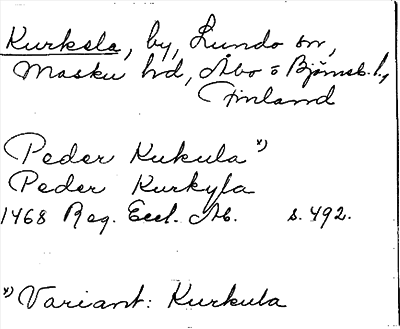 Kurksla, by, Lundo sn,
Masku hd, Åbo o Björneb. l.,
Finland
Peder Kukula *)
Peder Kurkyla
1468 Reg. Eccl. Ab. s. 492.
*) Variant: Kurkula